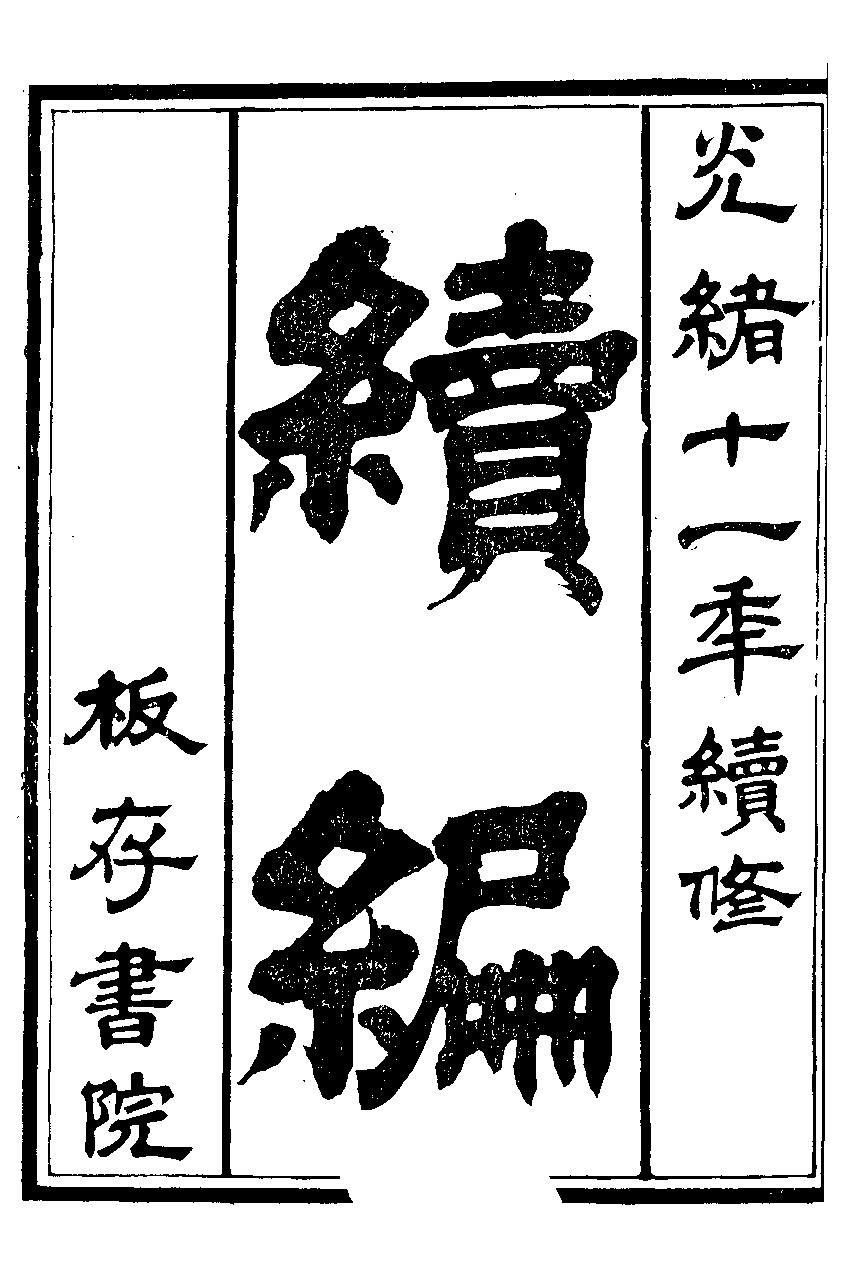 光緒十一秊續修
續編
板存書院